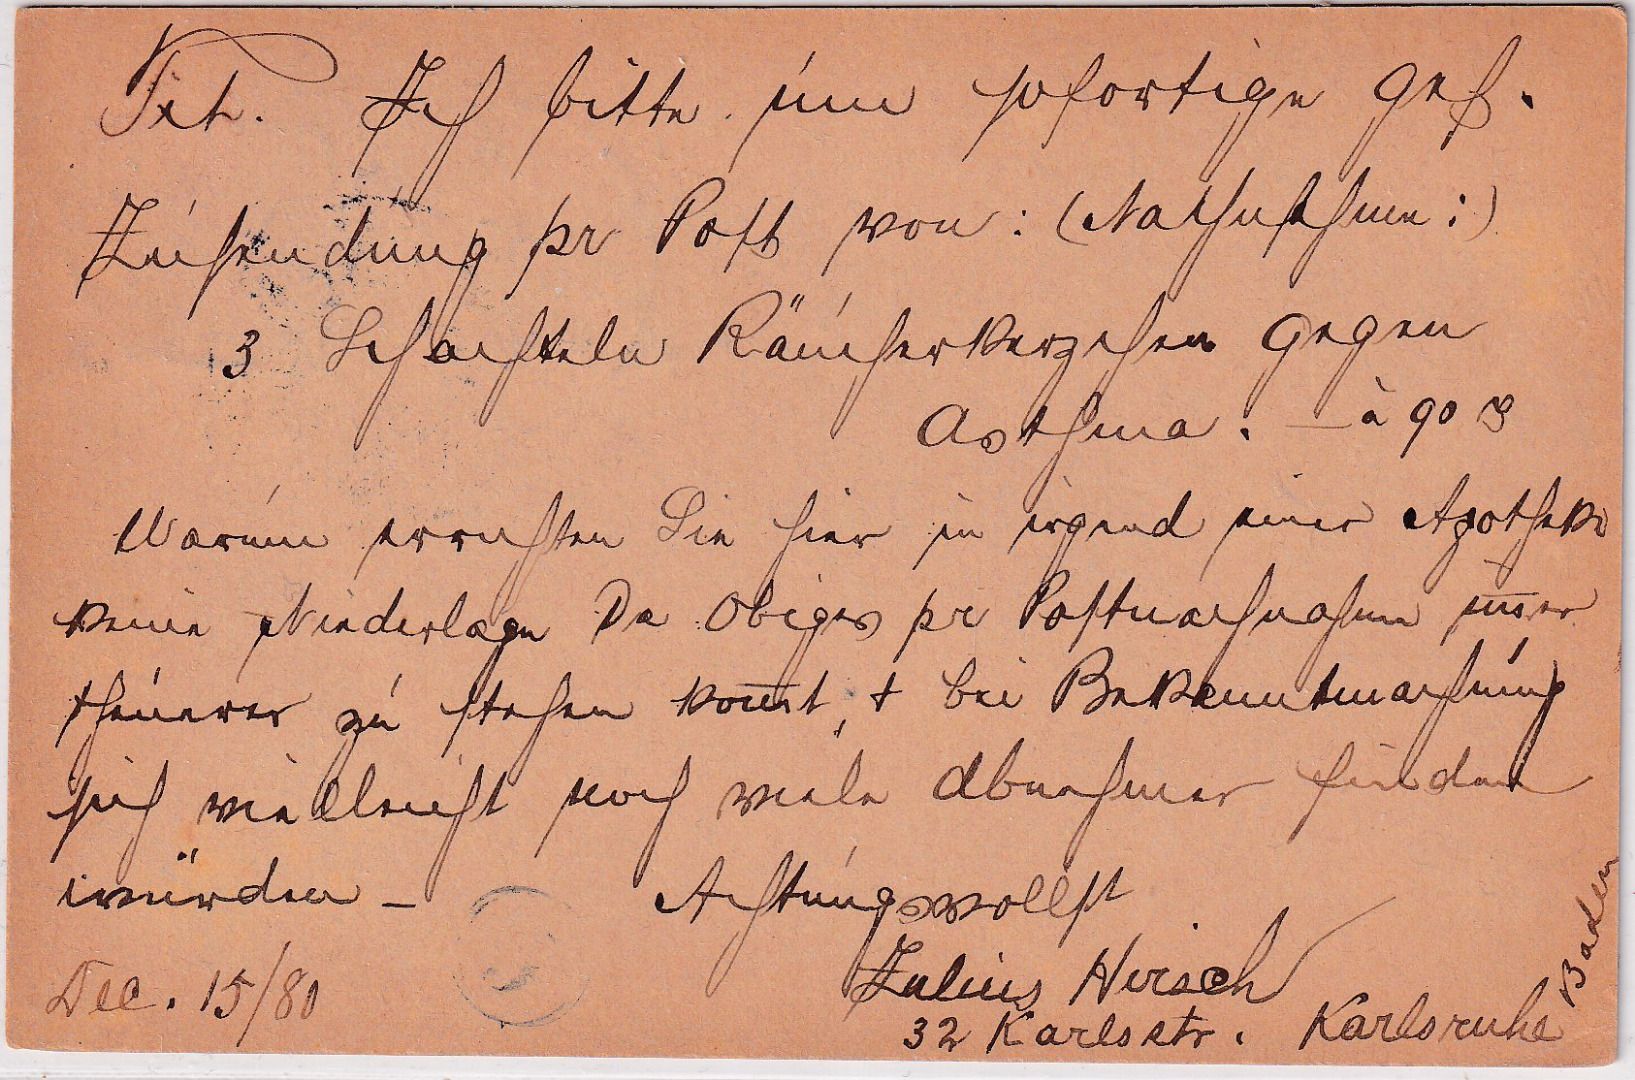 Ich bitte um sofortige gef.
Zusendung pr Post von: (Nachnahme:)
3 Schachteln Räucherkerzchen gegen
Asthma. — à 90 ₰
Warum errichten Sie hier in irgend einer Apotheke
keine Niederlage Da Obiges pr Postnachnahme im̅er
theuerer zu stehen kom̅t, + bei Bekanntmachung
sich vielleicht noch viele Abnehmer finden
würden –
Achtungsvollst
Julius Hirsch
32 Karlsstr. Karlsruhe
Baden
Dec. 15/80